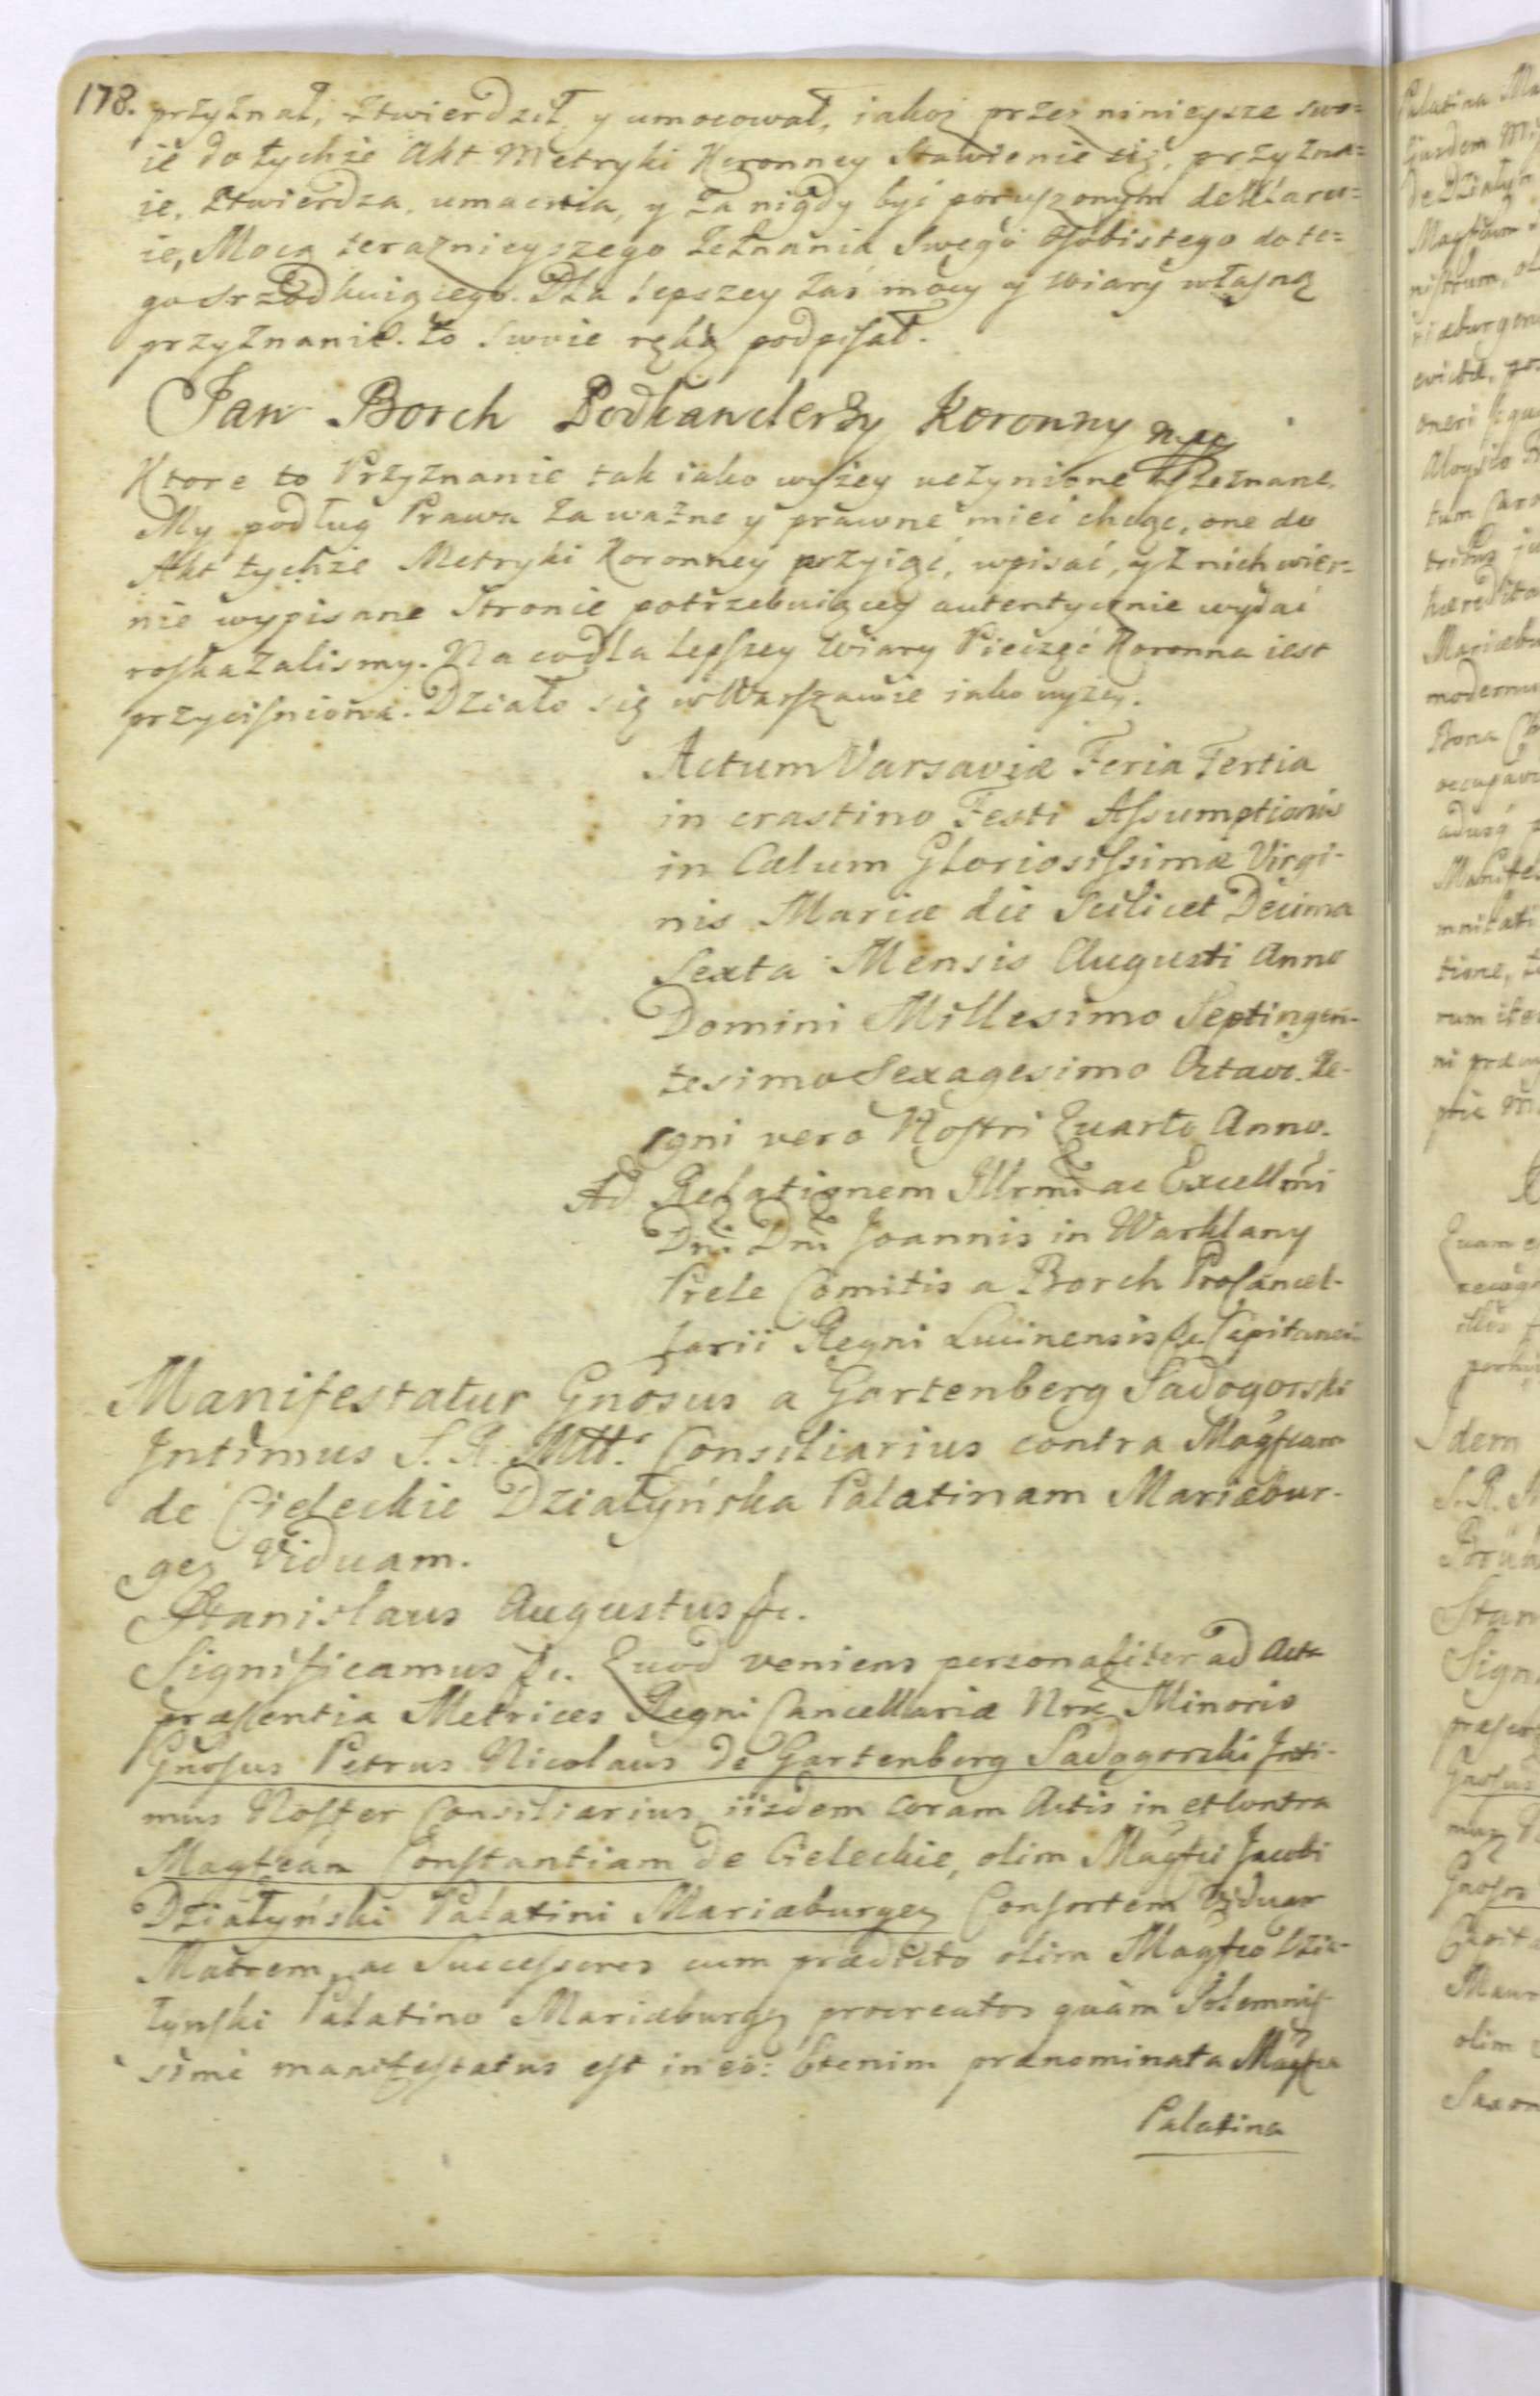 178. przyznał, ztwierdził, y umocował, iakoż przez ninieysze swo=
ie do tychże Akt Metryki Koronney Stawienie się, przyzna=
ie, ztwierdza, umacnia, y za nigdy być poruszonym deklaru=
ie, Mocą teraznieyszego zeznania Swego osobistego do te=
go srzodkuiącego. Dla lepszey zaś mocy y wiary własną
przyznanie to swoie ręką podpisał.
Jan Borch Podkanclerzy Koronny mpp
Ktore to Przyznanie tak iako wyżey uczynione y zeznane,
My podług Prawa za ważne y prawne mieć chcąc, one do
Akt tychże Metryki Koronney przyiąć, wpisać, y z nich wier=
nie wypisane Stronie potrzebuiącey autentycznie wydać
roskazalismy. Na co dla lepszey wiary Pieczęć Koronna iest
przycisniona. Działo się w Warszawie iako wyżey.
Actum Varsaviæ Feria Tertia
in crastino Festi Assumptionis
in Cœlum Gloriosissimæ Virgi-
nis Mariæ die Scilicet Decima
Sexta Mensis Augusti Anno
Domini Millesimo Septingen-
tesimo Sexagesimo Octavo. Re-
gni vero Nostri Quarto Anno.
Ad Relationem Illrmi ac Excellmi
Dni Dni Joannis in Warklany
Prele Comitis a Borch Procancel-
larii Regni Lucinensis &c Capitanei
Manifestatur Gnosus a Gartenberg Sadogorski
Intimus S. R. Mtt. Consiliarius contra Magfcam
de Cieleckie Działyńska Palatinam Mariæbur-
gen Viduam.
Stanislaus Augustus &c.
Significamus &c. Quod veniens personaliter ad Acta
præsentia Metrices Regni Cancellariæ Nræ Minoris
Gnosus Petrus Nicolaus de Gartenberg Sadogorski Inti-
mus Noster Consiliarius iisdem coram Actis in et contra
Magfcam Constantiam de Cieleckie, olim Magfci Jacobi
Działyński Palatini Mariæburgen Consortem Viduam
Matrem, ac Successores cum prædicto olim Magfco Dzia-
łynski Palatino Mariæburgen procreatos quàm Solemnis-
simè manifestatus est in eo: Etenim prænominata Magfca
Palatina